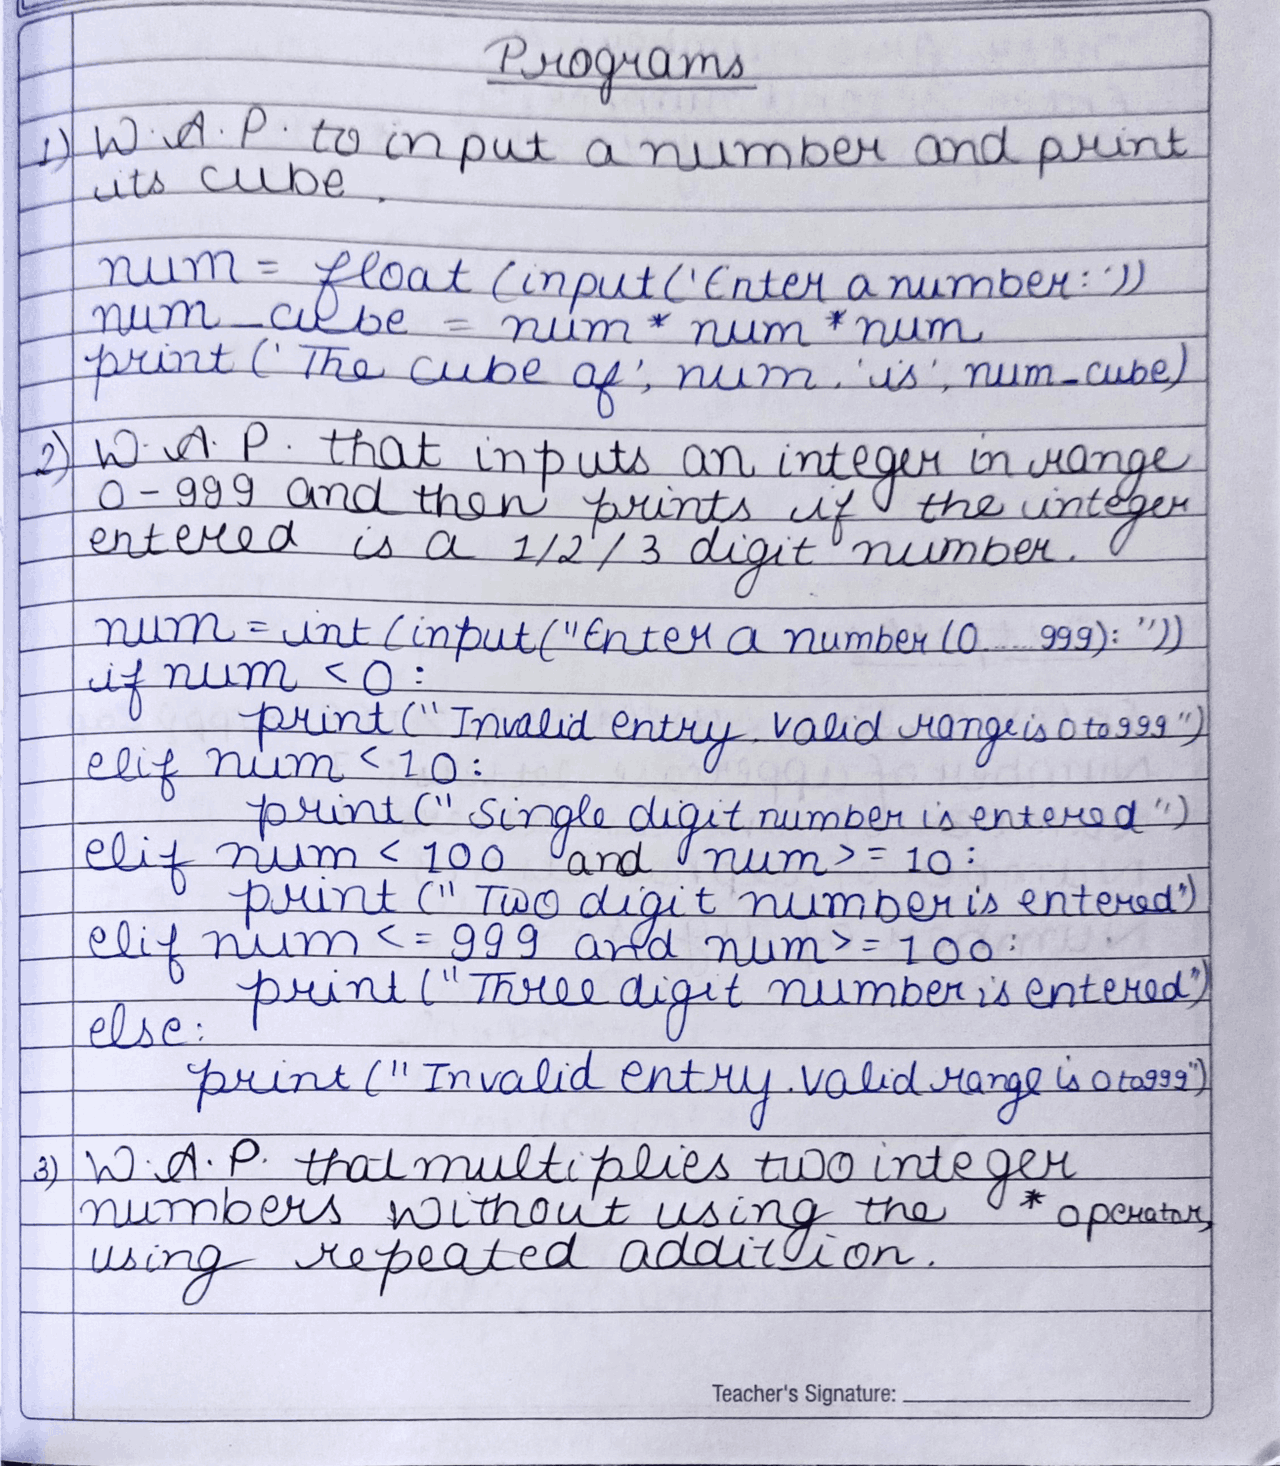 Programs
1) W.A.P. to input a number and print
its cube.
num = float (input('Enter a number: '))
num_cube = num * num * num
print ('The cube of', num, 'is', num_cube)
2) W.A.P. that inputs an integer in range
0-999 and then prints if the integer
entered is a 1/2/3 digit number.
num = int (input("Enter a number (0....999): "))
if num < 0 :
print (" Invalid entry. valid range is 0 to 999 ")
elif num < 10 :
print (" single digit number is entered ")
elif num < 100 and num >= 10 :
print (" Two digit number is entered")
elif num <= 999 and num >= 100 :
print (" Three digit number is entered")
else :
print (" Invalid entry. valid range is 0 to 999")
3) W.A.P. that multiplies two integer
numbers without using the * operator,
using repeated addition.
Teacher's Signature: